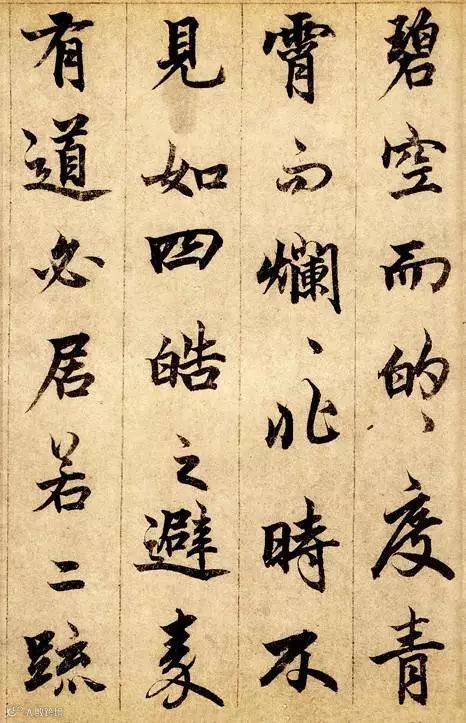 碧空而的、度青
霄而爛、非時不
見如四皓之避秦
有道必居若二疏